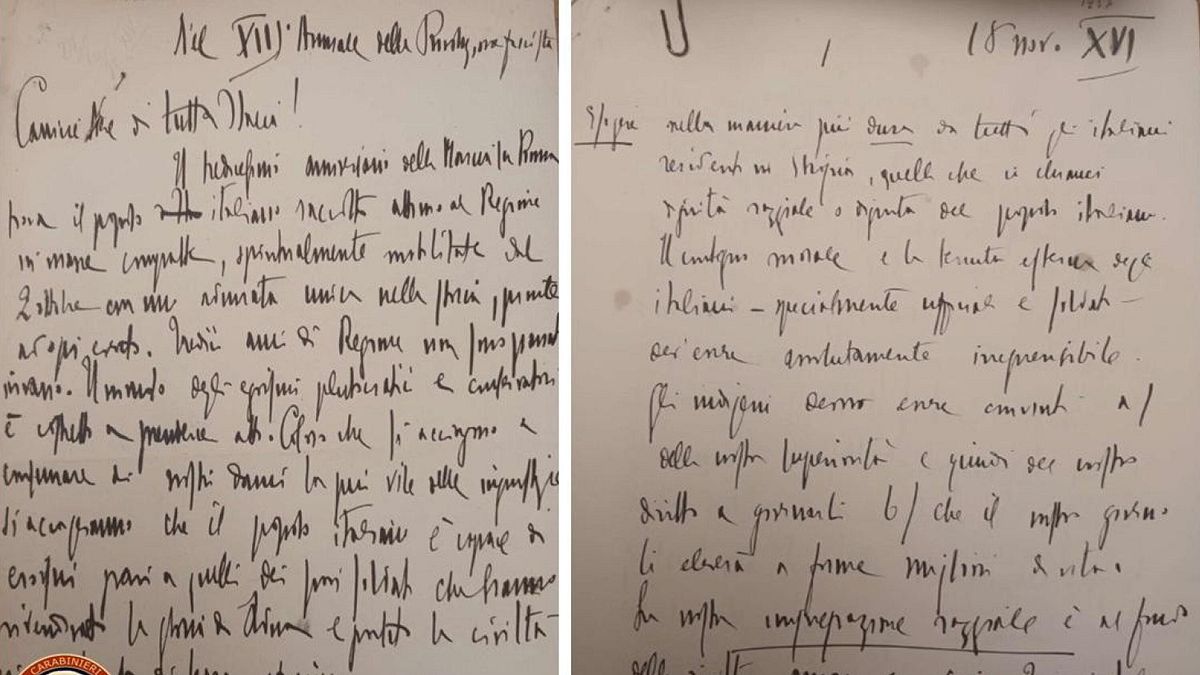 Nel XIII° Annuale della Rivoluz. era fascista
Camicie Nere di tutta Italia!
Il tredicesimo anniversario della Marcia su Roma
trova il popolo italiano raccolto attorno al Regime
in masse compatte, spiritualmente mobilitate dal
2 ottobre con una adunata unica nella storia, pronte
ad ogni evento. Tredici anni di Regime non sono passati
invano. Il mondo degli egoismi plutocratici e conservatori
è costretto a prenderne atto. Coloro che si accingono a
consumare ai nostri danni la più vile delle ingiustizie
si accorgeranno che il popolo italiano è capace di
eroismi pari a quelli dei suoi soldati che hanno
rivendicato la gloria di Adua e portato la civiltà
CARABINIERI
1
18 nov. XVI
Esigere nella maniera più dura da tutti gli italiani
residenti in
dignità razziale o dignità del popolo italiano.
Il contegno morale e la tenuta esterna degli
italiani - specialmente ufficiali e soldati -
dev'essere assolutamente irreprensibile.
Gli indigeni devono essere convinti a/
della nostra superiorità e quindi del nostro
diritto a governarli b/ che il nostro governo
li eleverà a forme migliori di vita.
La nostra impreparazione razziale è al fondo